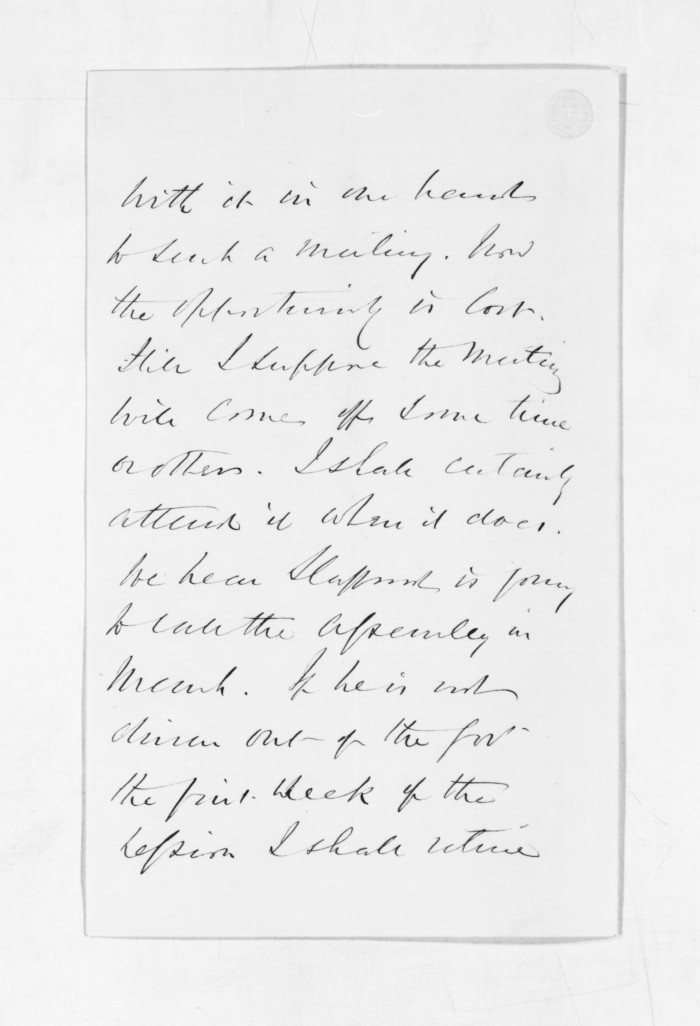 with it in our hands
to such a meeting. Now
the opportunity is lost.
Still I suppose the Meeting
will come off some time
or other. I shall certainly
attend it when it does.
We hear Stafford is going
to call the Assembly in
March. If he is not
driven out of the Govt
the first week of the
session I shall retire